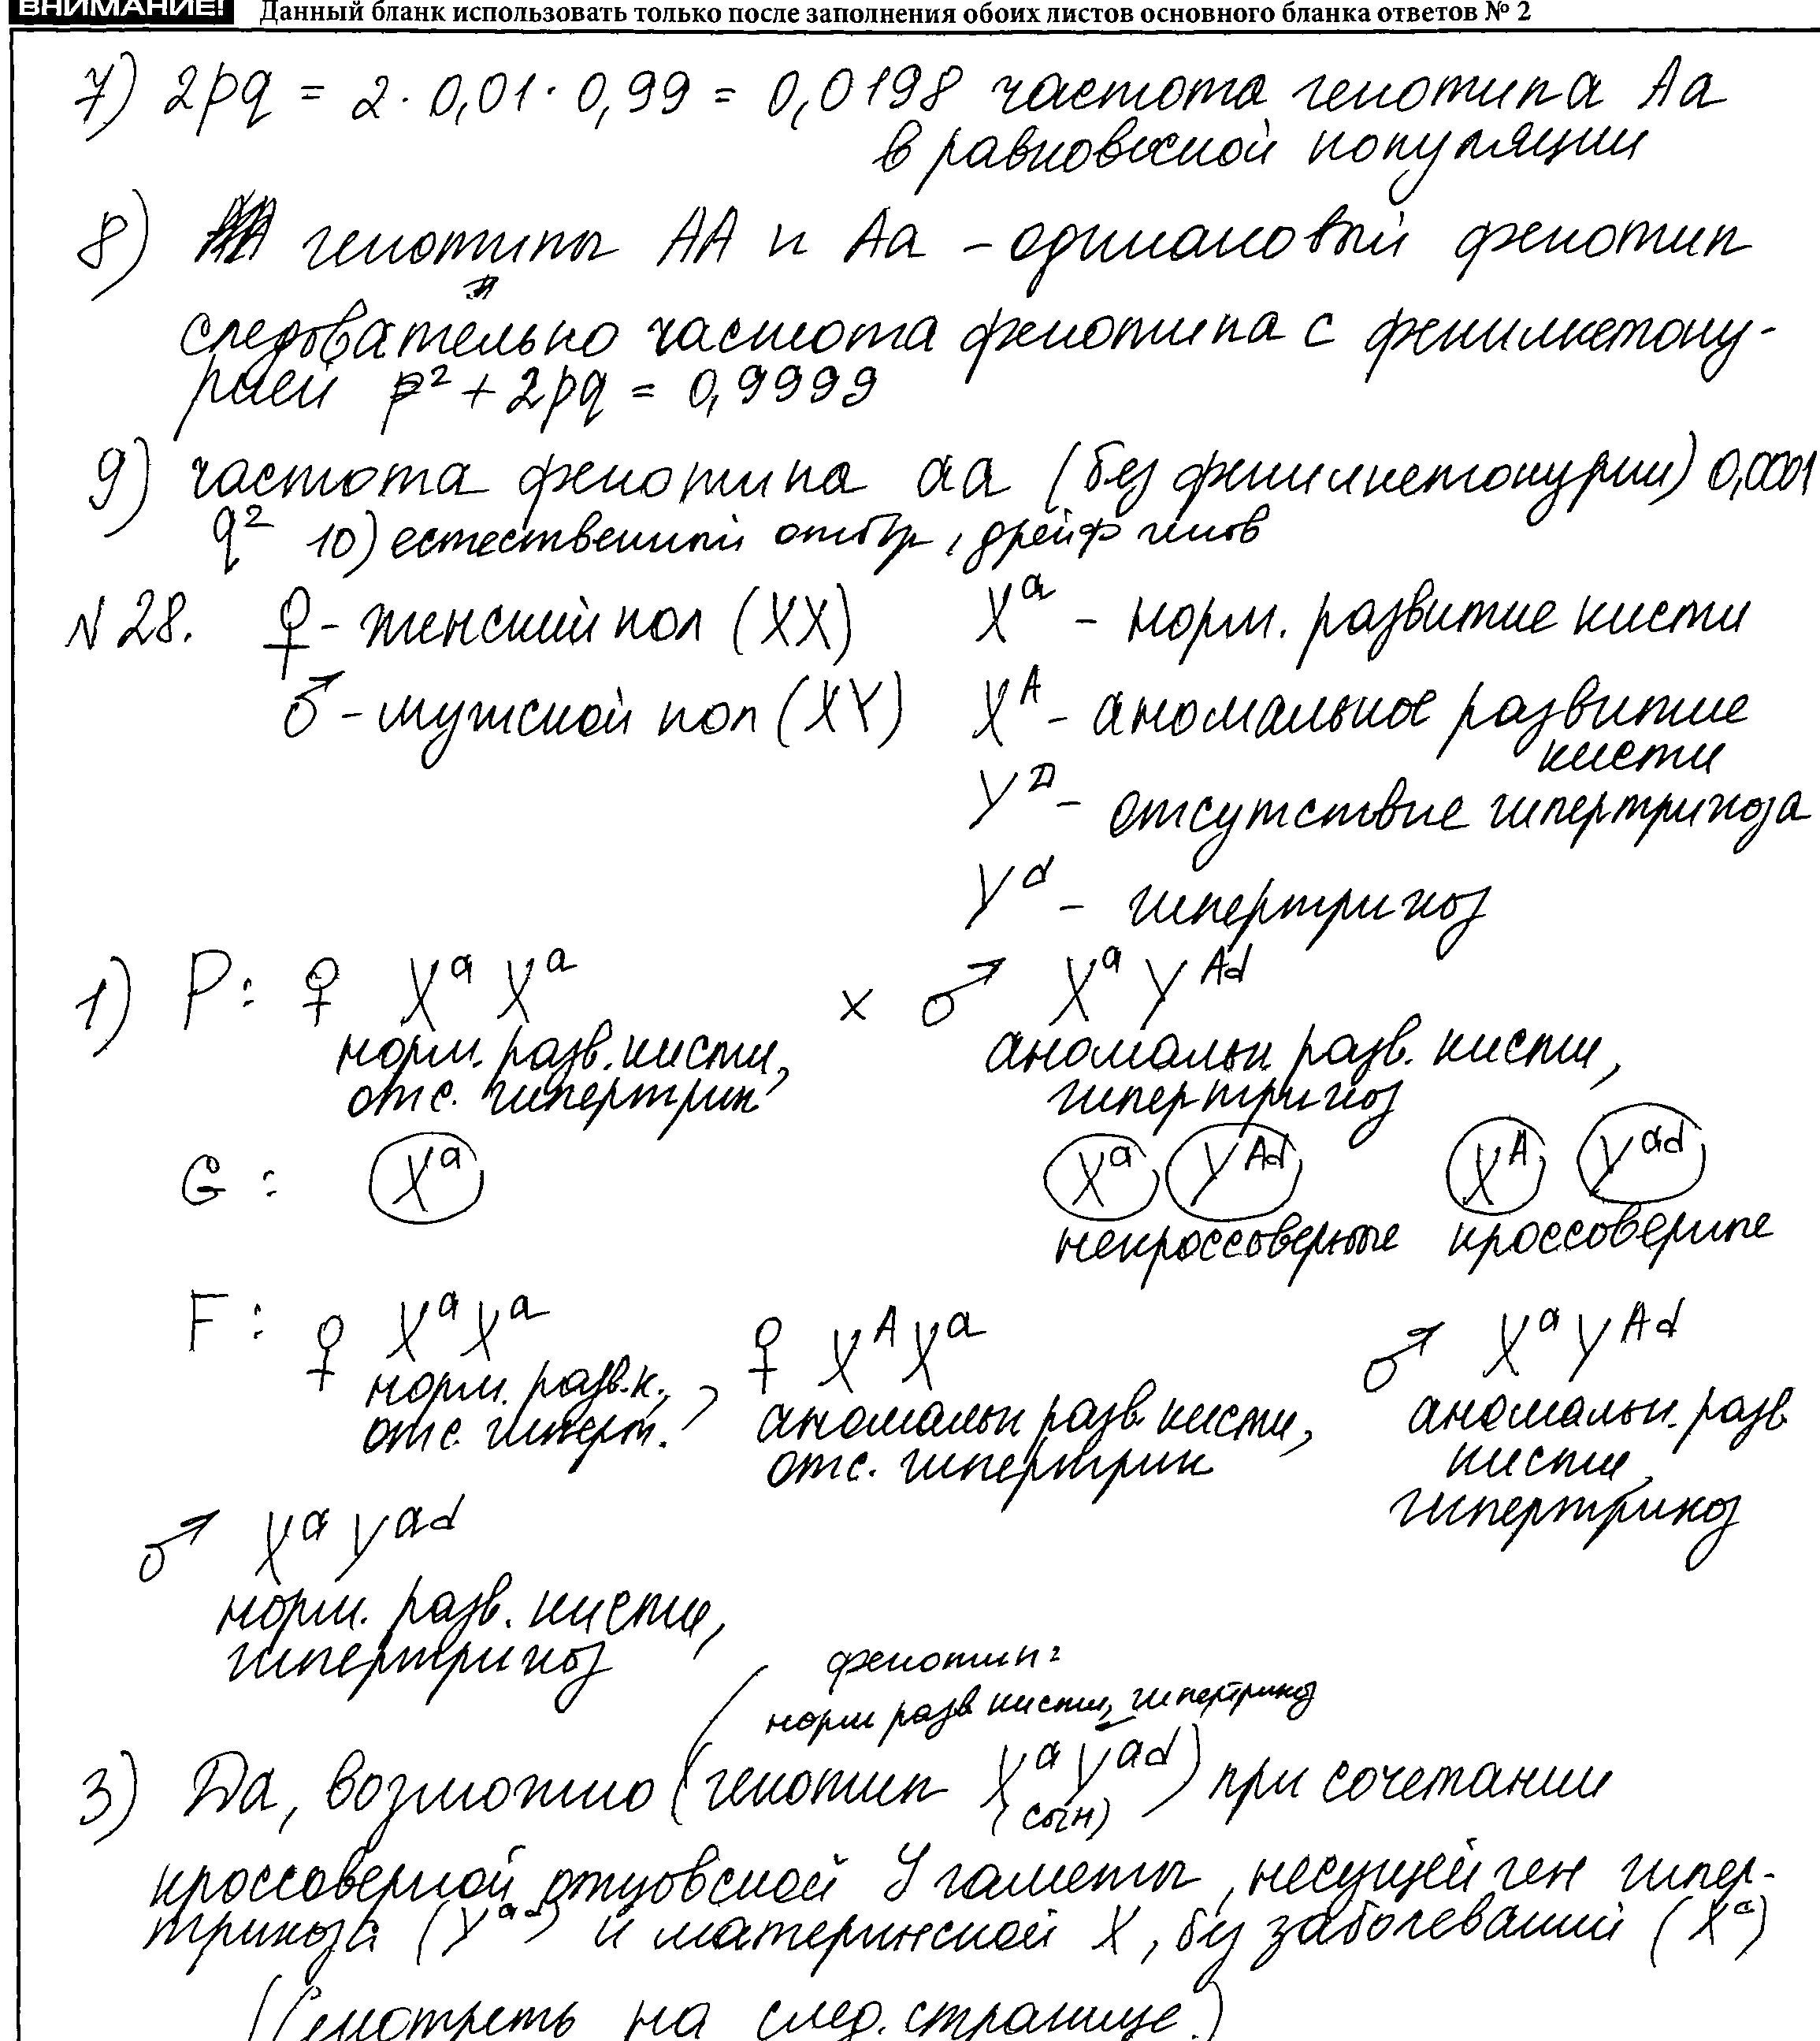 ВНИМАНИЕ! Данный бланк использовать только после заполнения обоих листов основного бланка ответов № 2
7) 2pq = 2 · 0,01 · 0,99 = 0,0198 частота генотипа Aa
в равновесной популяции
8) генотипы AA и Aa – одинаковый фенотип
следовательно частота фенотипа с фенилкетону-
рией p² + 2pq = 0,9999
9) частота фенотипа aa (без фенилкетонурии) 0,0001
q² 10) естественный отбор, дрейф генов
№ 28. ♀ – женский пол (XX) Xᵃ – норм. развитие кисти
♂ – мужской пол (XY) Xᴬ – аномальное развитие
кисти
Yᴰ – отсутствие гипертрихоза
Yᵈ – гипертрихоз
1) P: ♀ Xᵃ Xᵃ × ♂ Xᵃ Yᴬᵈ
норм. разв. кисти, аномальн разв. кисти,
отс. гипертрих гипертрихоз
G: Xᵃ Xᵃ Yᴬᵈ Xᴬ Yᵃᵈ
некроссоверные кроссоверные
F: ♀ Xᵃ Xᵃ ♀ Xᴬ Xᵃ ♂ Xᵃ Yᴬᵈ
норм. разв. к., аномальн разв кисти, аномальн. разв
отс. гиперт. отс. гипертрих кисти,
гипертрихоз
♂ Xᵃ Yᵃᵈ
норм. разв. кисти,
гипертрихоз
фенотип:
норм разв кисти, гипертрихоз
3) Да, возможно (генотип Xᵃ Yᵃᵈ) при сочетании
(сын)
кроссоверной отцовской Y гаметы, несущей ген гипер-
трихоза (Yᵃᵈ) и материнской X, без заболеваний (Xᵃ)
(Смотреть на след. странице)